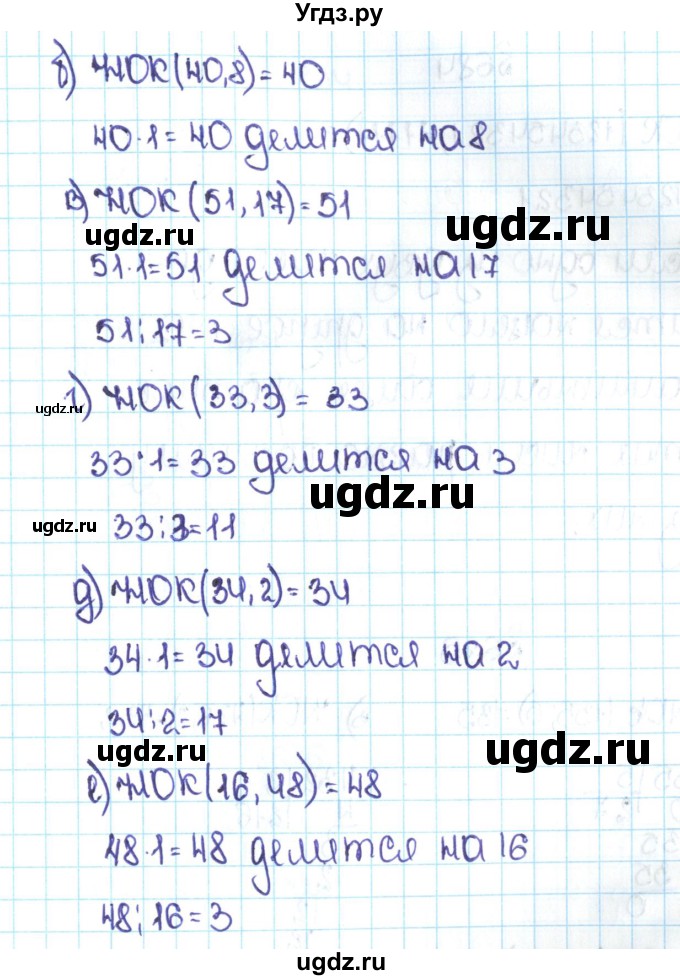 Угдз.ру
б) НОК(40,8)=40
40·1=40 делится на 8
в) НОК(51,17)=51
ugdz.ru ugdz.ru
51·1=51 делится на 17
51:17=3
ugdz.ru
г) НОК(33,3)=33
33·1=33 делится на 3
ugdz.ru
ugdz.ru 33:3=11
д) НОК(34,2)=34
34·1=34 делится на 2
34:2=17
ugdz.ru ugdz.ru
е) НОК(16,48)=48
48·1=48 делится на 16
48:16=3
ugdz.ru ugdz.ru